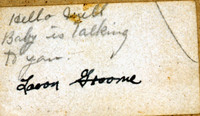 Hello
Baby is talking
to you.
Leon Groome